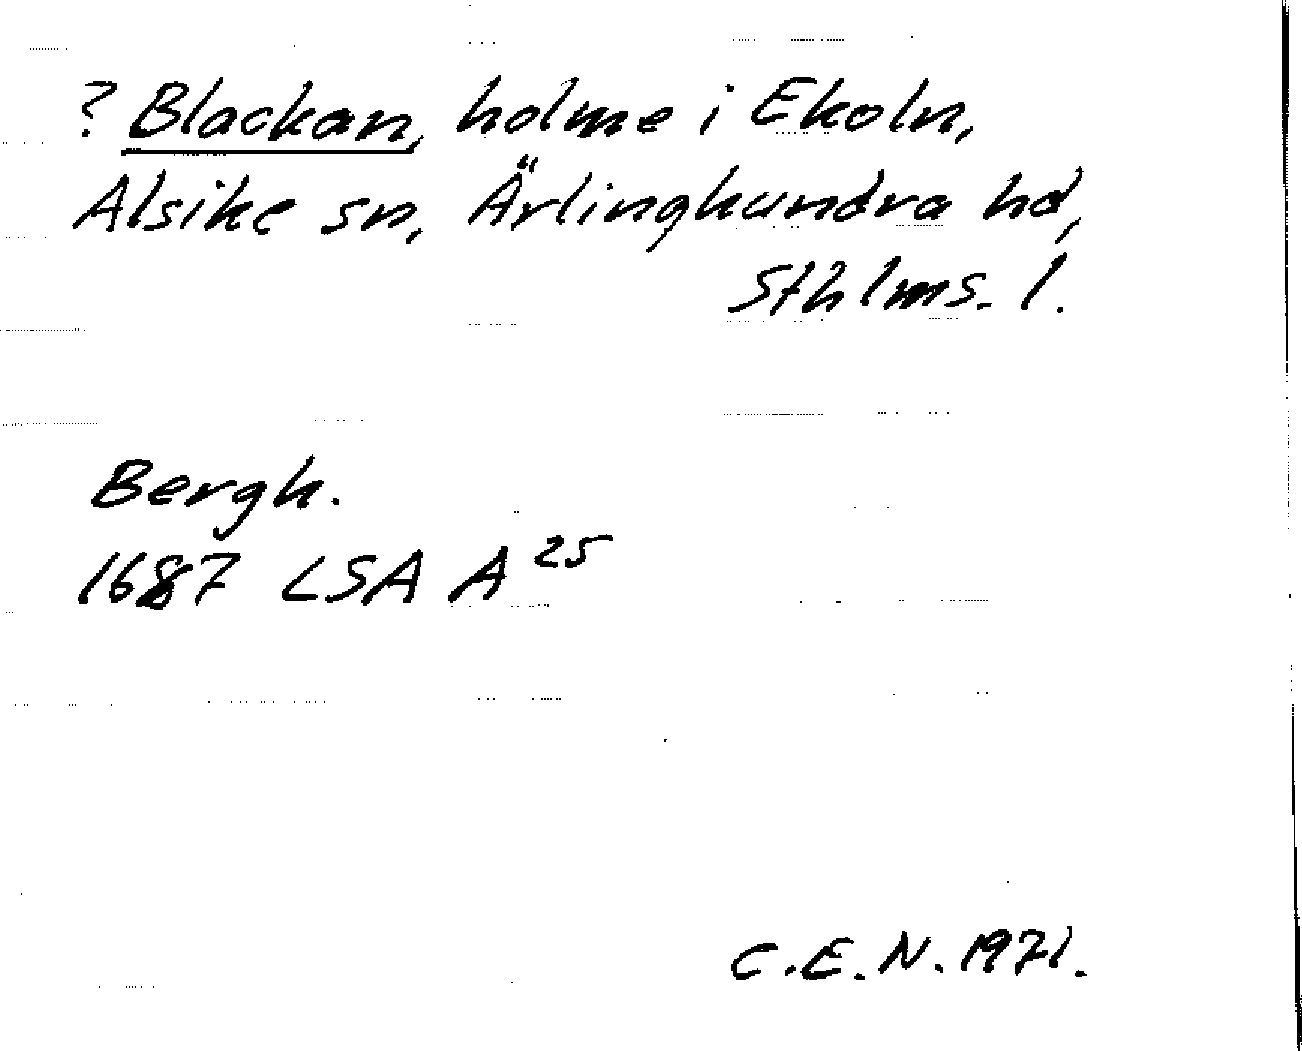 ? Blackan, holme i Ekoln,
Alsike sn, Ärlinghundra hd,
Sthlms. l.
Bergh.
1687 LSA A 25
C.E.N. 1971.